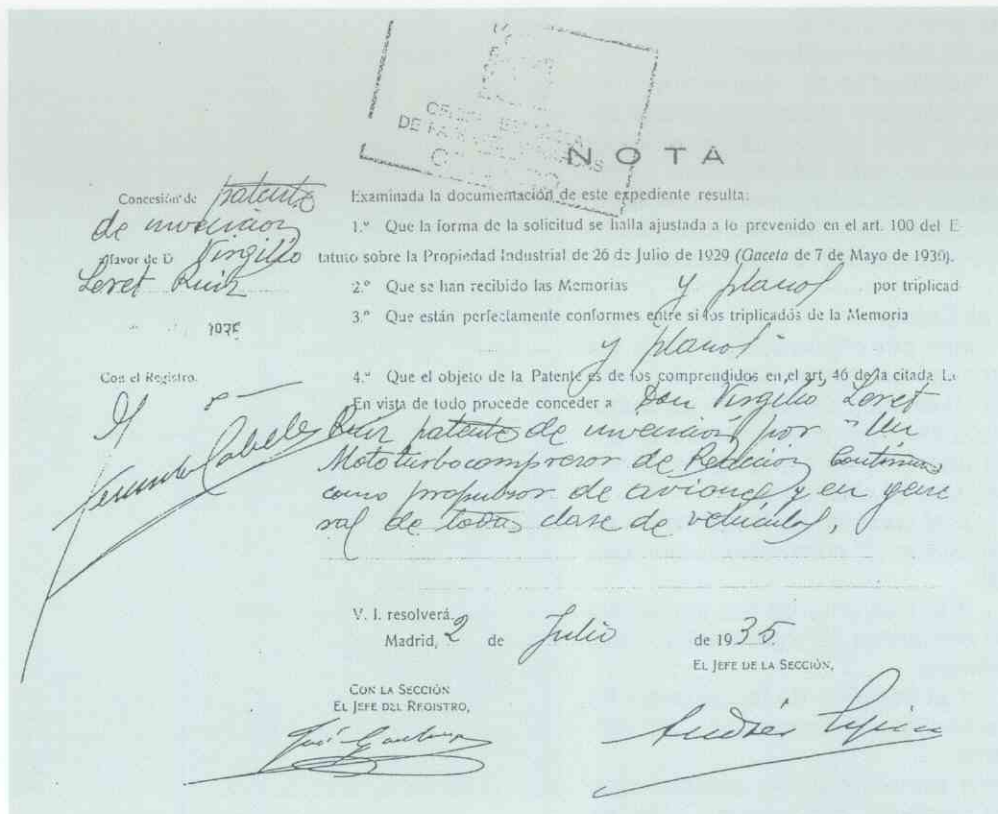 OFICINA ESPAÑOLA
DE PATENTES
NOTA
Concesión de patente
de invención
a favor de D Virgilio
Leret Ruiz
1935
Con el Registro.
Examinada la documentación de este expediente resulta:
1.º Que la forma de la solicitud se halla ajustada a lo prevenido en el art. 100 del E
tatuto sobre la Propiedad Industrial de 26 de Julio de 1929 (Gaceta de 7 de Mayo de 1930).
2.º Que se han recibido las Memorias y planos por triplicad
3.º Que están perfectamente conformes entre si los triplicados de la Memoria
y planos
4.º Que el objeto de la Patente es de los comprendidos en el art, 46 de la citada Le
En vista de todo procede conceder a Don Virgilio Leret
Ruiz patente de invención por "Un
Mototurbocompresor de Reacción Continua
como propulsor de aviones y en gene
ral de toda clase de vehículos,
V. I. resolverá.
Madrid, 2 de Julio de 1935.
EL JEFE DE LA SECCIÓN,
CON LA SECCIÓN
EL JEFE DEL REGISTRO,
José
Andrés